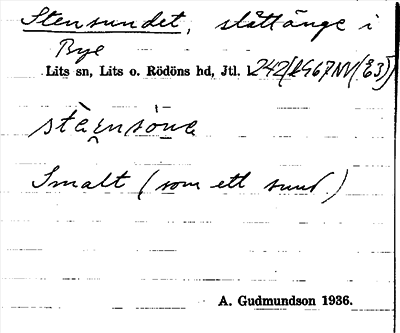 Stensundet, slåttänge i
Bye
Lits sn, Lits o. Rödöns hd, Jtl. l.
stèi̯nsönɐ
Smalt (som ett sund)
A. Gudmundson 1936.